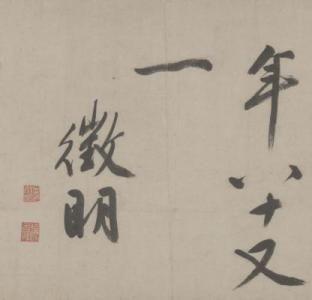 年八十又
一
徵明